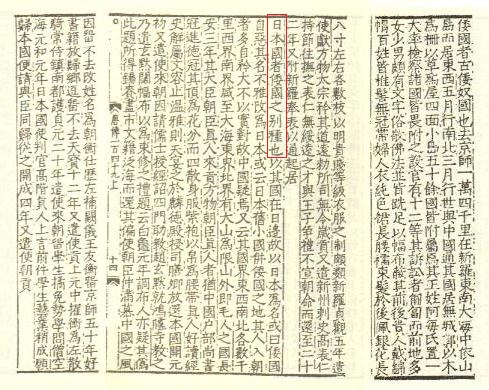 倭國者古倭奴國也去京師一萬四千里在新羅東南大海中依山
島而居東西五月行南北三月行世與中國通其國居無城郭以木
為柵以草為屋四面小島五十餘國皆附屬焉其王姓阿每氏置一
大率檢察諸國皆畏附之設官有十二等其訴訟者匍匐而前地多
女少男頗有文字俗敬佛法並皆跣足以幅布蔽其前後貴人戴錦
帽百姓皆椎髻無冠帶婦人衣純色裙長腰襦束髮於後佩銀花長
八寸左右各數枝以明貴賤等級衣服之制頗類新羅貞觀五年遣
使獻方物太宗矜其道遠勑所司無令歲貢又遣新州刺史高表仁
持節往撫之表仁無綏遠之才與王子爭禮不宣朝命而還至二十
二年又附新羅奉表以通起居
日本國者倭國之別種也以其國在日邊故以日本為名或曰倭國
自惡其名不雅改為日本或云日本舊小國併倭國之地其人入朝
者多自矜大不以實對故中國疑焉又云其國界東西南北各數千
里西界南界咸至大海東界北界有大山為限山外即毛人之國長
安三年其大臣朝臣真人來貢方物朝臣真人者猶中國戶部尚書
冠進德冠其頂為花分而四散身服紫袍以帛為腰帶真人好讀經
史解屬文容止溫雅則天宴之於麟德殿授司膳卿放還本國開元
初又遣使來朝因請儒士授經詔四門助教趙玄默就鴻臚寺教之
乃遺玄默闊幅布以為束修之禮題云白龜元年調布人亦疑其偽
此題所得錫賚盡市文籍泛海而還其偏使朝臣仲滿慕中國之風
唐傳一百四十九上 十四
因留不去改姓名為朝衡仕歷左補闕儀王友衡留京師五十年好
書籍放歸鄉逗留不去天寶十二年又遣使貢上元中擢衡為左散
騎常侍鎮南都護貞元二十年遣使來朝留學生橘免勢學問僧空
海元和元年日本國使判官高階真人上言前件學生藝業稍成願
歸本國便請與臣同歸從之開成四年又遣使朝貢